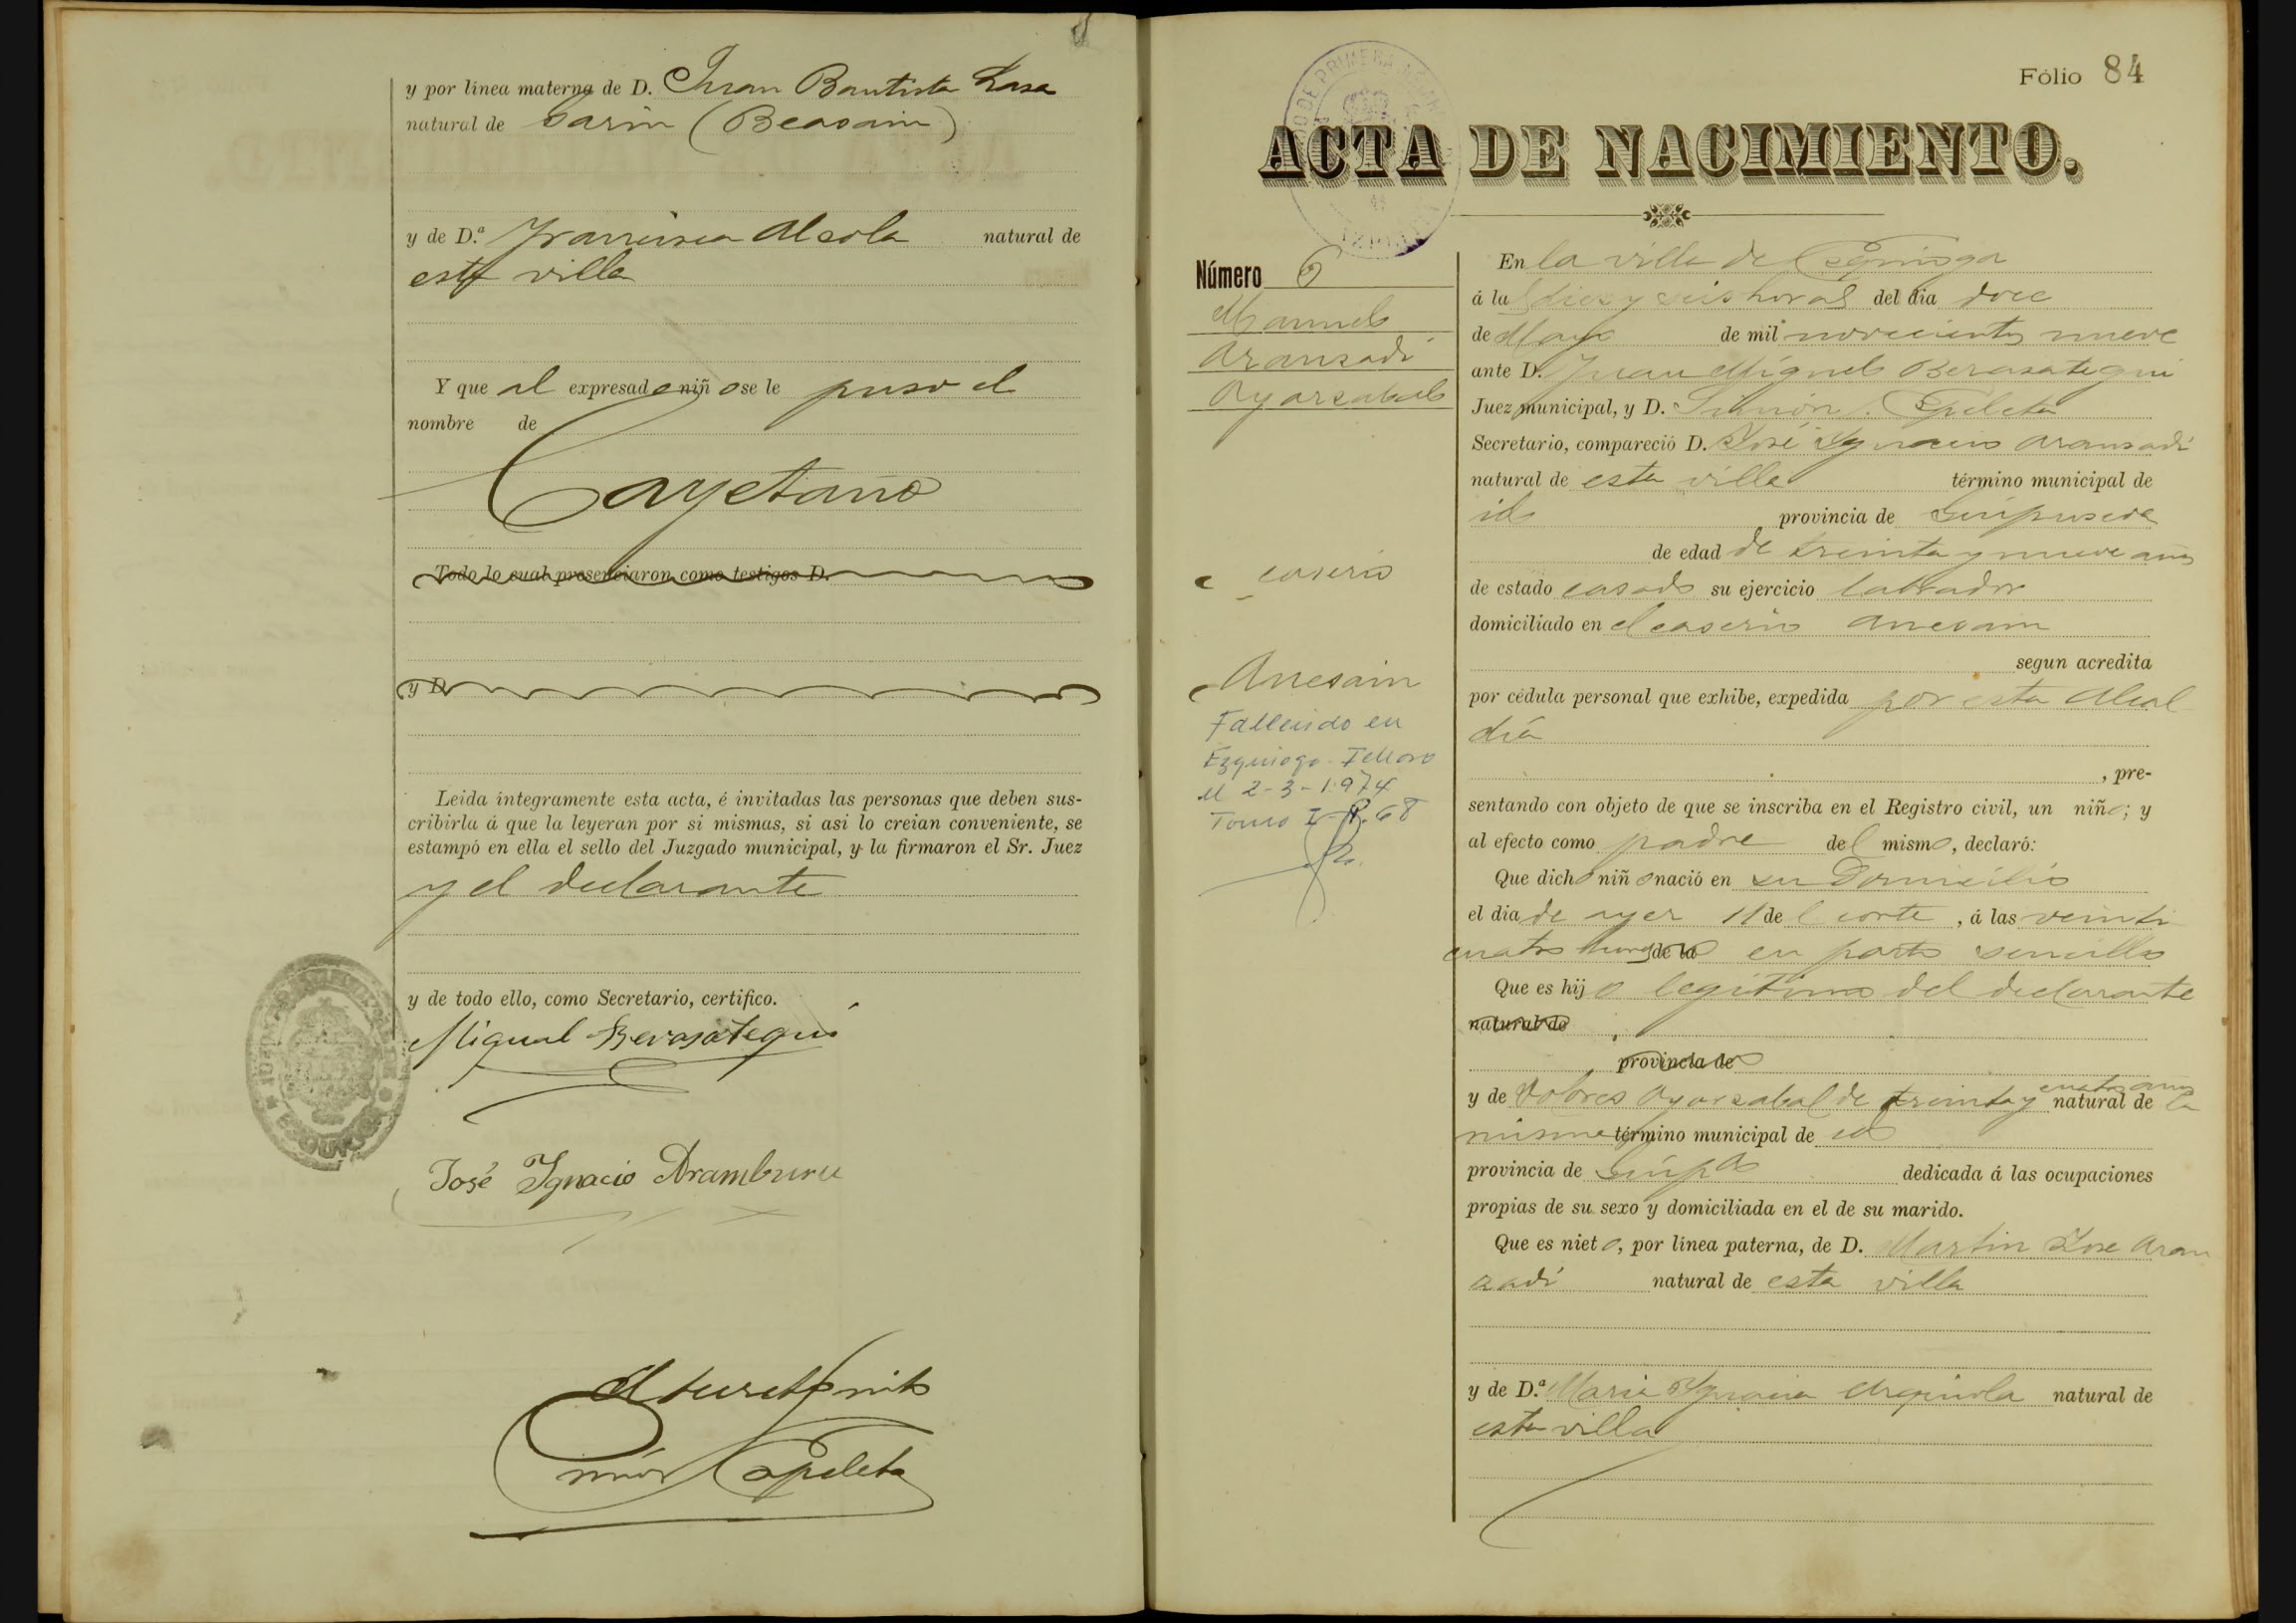 y por línea materna de D. Juan Bautista Lasa
natural de Garin (Beasain)
y de D.ª Francisca Alcola natural de
esta villa
Y que al expresado niño se le puso el
nombre de
Cayetano
Todo lo cual presenciaron como testigos D.
y D.
Leida íntegramente esta acta, é invitadas las personas que deben sus-
cribirla á que la leyeran por si mismas, si asi lo creian conveniente, se
estampó en ella el sello del Juzgado municipal, y la firmaron el Sr. Juez
y el declarante
y de todo ello, como Secretario, certifico.
Miguel Berasategui
José Ygnacio Aramburu
Espeleta
Fólio 84
ACTA DE NACIMIENTO.
Número 6
Manuel
Aransadi
Oyarzabal
caserio
Anesain
Fallecido en
Ezquioga-Itsaso
el 2-3-1974
Tomo I P. 68
En la villa de Ezquioga
á las diez y seis horas del dia doce
de Mayo de mil novecientos nueve
ante D. Juan Miguel Berasategui
Juez municipal, y D. Simón Espeleta
Secretario, compareció D. José Ygnacio Aransadi
natural de esta villa término municipal de
id provincia de Guipuzcoa
de edad de treinta y nueve años
de estado casado su ejercicio labrador
domiciliado en el caserio Anesain
segun acredita
por cédula personal que exhibe, expedida por esta Alcal
día
, pre-
sentando con objeto de que se inscriba en el Registro civil, un niño; y
al efecto como padre del mismo, declaró:
Que dicho niño nació en su Domicilio
el dia de ayer 11 del corte, á las veinti
cuatro horas de la en parto sencillo
Que es hijo legitimo del declarante
natural de
provincia de
y de Dolores Oyarzabal de treinta y cuatro años natural de la
misma término municipal de id
provincia de Guipª dedicada á las ocupaciones
propias de su sexo y domiciliada en el de su marido.
Que es nieto, por línea paterna, de D. Martin José Aran
zadi natural de esta villa
y de D.ª Maria Ygnacia natural de
esta villa